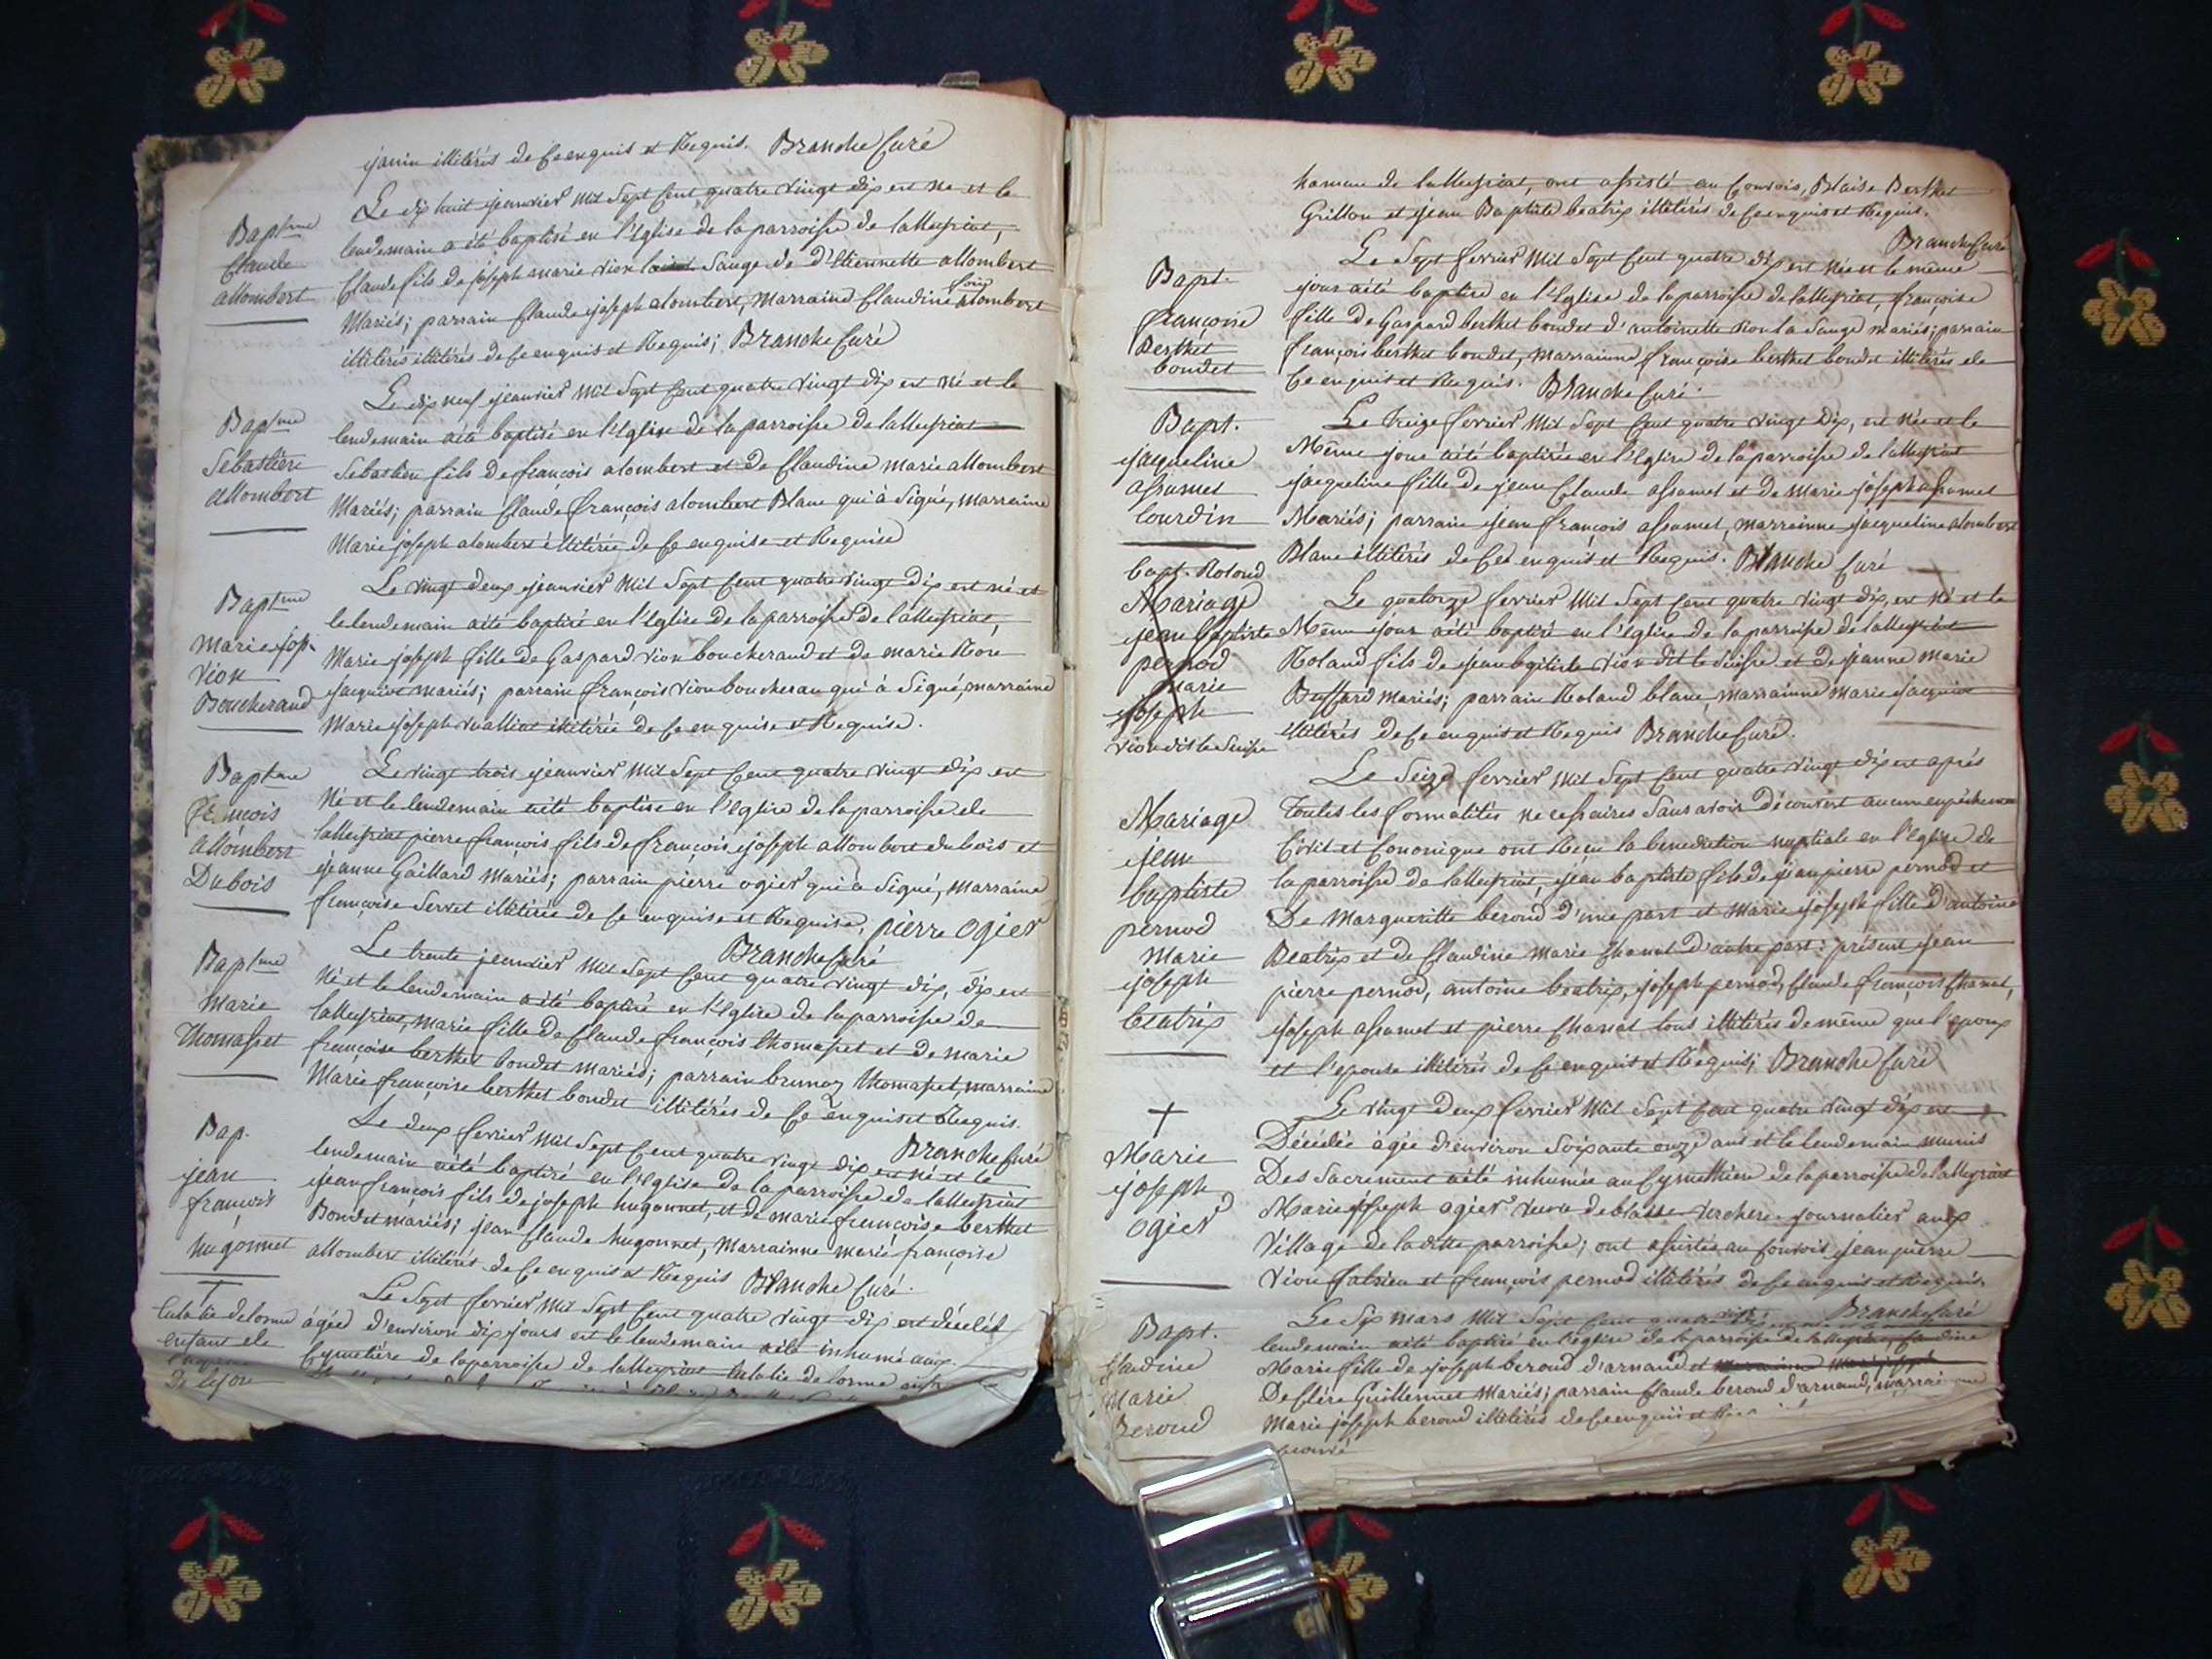 janin illitérés de ce enquis et Requis. Branche Curé
Bap.me
Claude
allombert
Le dix huit jeanvier Mil Sept Cent quatre vingt dix est né et le
lendemain a été baptisé en l'Eglise de la parroisse de lalleyriat,
Claude fils de joseph marie vion Sauge de d'Etiennette allombert
Mariés; parrain Claude joseph alombert, Marraine Claudine alombert
illitérés illitérés de ce enquis et Requis; Branche Curé
Bap.me
Sebastien
allombert
Le dix neuf jeanvier Mil Sept Cent quatre vingt dix est né et le
lendemain a été baptisé en l'Eglise de la parroisse de lalleyriat
Sebastien fils de françois alombert et de Claudine marie allombert
Mariés; parrain Claude françois alombert Blanc qui à Signé, marraine
Marie joseph alombert illitérée de ce enquise et Requise
Bap.me
Marie jos.
vion
Boucherand
Le vingt deux jeanvier Mil Sept Cent quatre vingt dix est né et
le lendemain a été baptisé en l'Eglise de la parroisse de lalleyriat,
Marie joseph fille de Gaspard vion boucherand et de marie
jacquiot mariés; parrain françois vion boucheran qui à Signé, marraine
Marie joseph illitérée de ce enquise et Requise.
Bap.me
françois
allombert
Dubois
Le vingt trois jeanvier Mil Sept Cent quatre vingt dix est
Né et le lendemain a été baptisé en l'Eglise de la parroisse de
lalleyriat pierre françois fils de françois joseph allombert dubois et
jeanne Gaillard Mariés; parrain pierre ogier qui à Signé, marraine
françoise Servet illitérée de ce enquise et Requise, pierre Ogier
Branche Curé
Bap.me
Marie
Thomasset
Le trente jeanvier Mil Sept Cent quatre vingt dix, dix est
Né et le lendemain a été baptisé en l'Eglise de la parroisse de
lalleyriat, Marie fille de Claude françois thomasset et de marie
françoise berthet boudet mariés; parrain thomasset, marraine
Marie françoise berthet boudet illitérés de ce enquis et Requis.
Branche Curé
Bap.
jean
françois
hugonnet
Le deux fevrier Mil Sept Cent quatre vingt dix est né et le
lendemain a été baptisé en l'Eglise de la parroisse de lalleyriat
jean françois fils de joseph hugonnet, et de marie françoise berthet
Boudet mariés; jean Claude hugonnet, Marrainne marie françoise
allombert illitérés de ce enquis et Requis Branche Curé.
delorme
enfant de
Le Sept fevrier Mil Sept Cent quatre vingt dix est décédé
âgée d'environ dix jours et le lendemain a été inhumé aux
Cymetière de la parroisse de lalleyriat de lorme
hameau de lalleyriat, ont assisté au Convois, Blaise Berthet
Grillon et jean Baptiste beatrix illitérés de ce enquis et Requis.
Branche Curé
Bapt.
françoise
Berthet
boudet
Le Sept fevrier Mil Sept Cent quatre dix est née et le même
jour a été baptisé en l'Eglise de la parroisse de lalleyriat, françoise
fille de Gaspard berthet boudet d'antoinette vion la Sauge mariés; parrain
françois berthet boudet, marrainne françoise berthet boudet illitérés de
ce enquis et Requis. Branche Curé.
Bapt.
jacqueline
assumet
lourdin
Le treize fevrier Mil Sept Cent quatre vingt dix, est née et le
Même jour a été baptisée en l'Eglise de la parroisse de lalleyriat
jacqueline fille de jean Claude assumet et de Marie joseph assumet
Mariés; parrain jean françois assumet, marrainne jacqueline alombert
Blanc illitérés de ce enquis et Requis. Branche Curé
bapt. Roland
Mariage
jean baptiste
pernod
marie
joseph
vion dit le Suisse
Le quatorze fevrier Mil Sept Cent quatre vingt dix, est né et le
Même jour a été baptisé en l'Eglise de la parroisse de lalleyriat
Roland fils de jean baptiste vion dit le Suisse et de jeanne marie
Buffard Mariés; parrain Roland blanc, marrainne marie jacquiot
illitérés de ce enquis et Requis Branche Curé.
Mariage
jean
baptiste
pernod
Marie
joseph
beatrix
Le Seize fevrier Mil Sept Cent quatre vingt dix est après
toutes les formalités necessaires Sans avoir découvert aucun empêchement
Civil et Canonique ont Reçu la benediction nuptiale en l'eglise de
la parroisse de lalleyriat, jean baptiste fils de jean pierre pernod et
De Margueritte beroud d'une part et Marie joseph fille d'antoine
Beatrix et de Claudine Marie Chanat d'autre part: présent jean
pierre pernod, antoine beatrix, joseph pernod, Claude françois Chanat,
joseph assumet et pierre Chanat tous illitérés de même que l'epoux
et l'epouse illitérés de ce enquis et Requis; Branche Curé
+
Marie
joseph
ogier
Le vingt deux fevrier Mil Sept Cent quatre vingt dix est
Décédée âgée d'environ Soixante onze ans et le lendemain munis
Des Sacrement a été inhumée au Cymethiere de la parroisse de lalleyriat
Marie joseph ogier veuve de blaise verchere journalier aux
Village de la ditte parroisse; ont assistés au Convois jean pierre
Vion et françois pernod illitérés de ce enquis et Requis.
Branche Curé
Bapt.
Claudine
Marie
Beroud
Le Six Mars Mil Sept Cent quatre vingt
lendemain a été baptisé en l'eglise de la parroisse de lalleyriat, Claudine
Marie fille de joseph beroud d'arnaud et
De Clére Guillermet Mariés; parrain Claude beroud d'arnaud, marrainne
Marie joseph beroud illitérés de ce enquis et